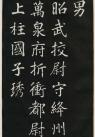 男
昭武校尉守絳州
萬泉府折衝都尉
上柱國子琇